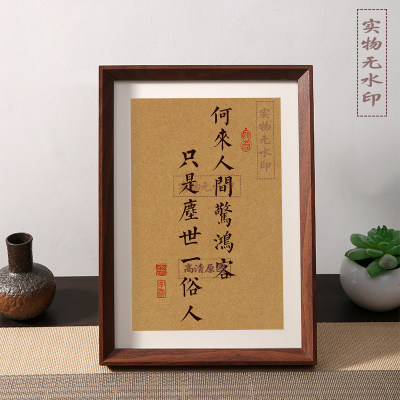 何來人間驚鴻客
只是塵世一俗人
实物无水印
实物无水印
高清原